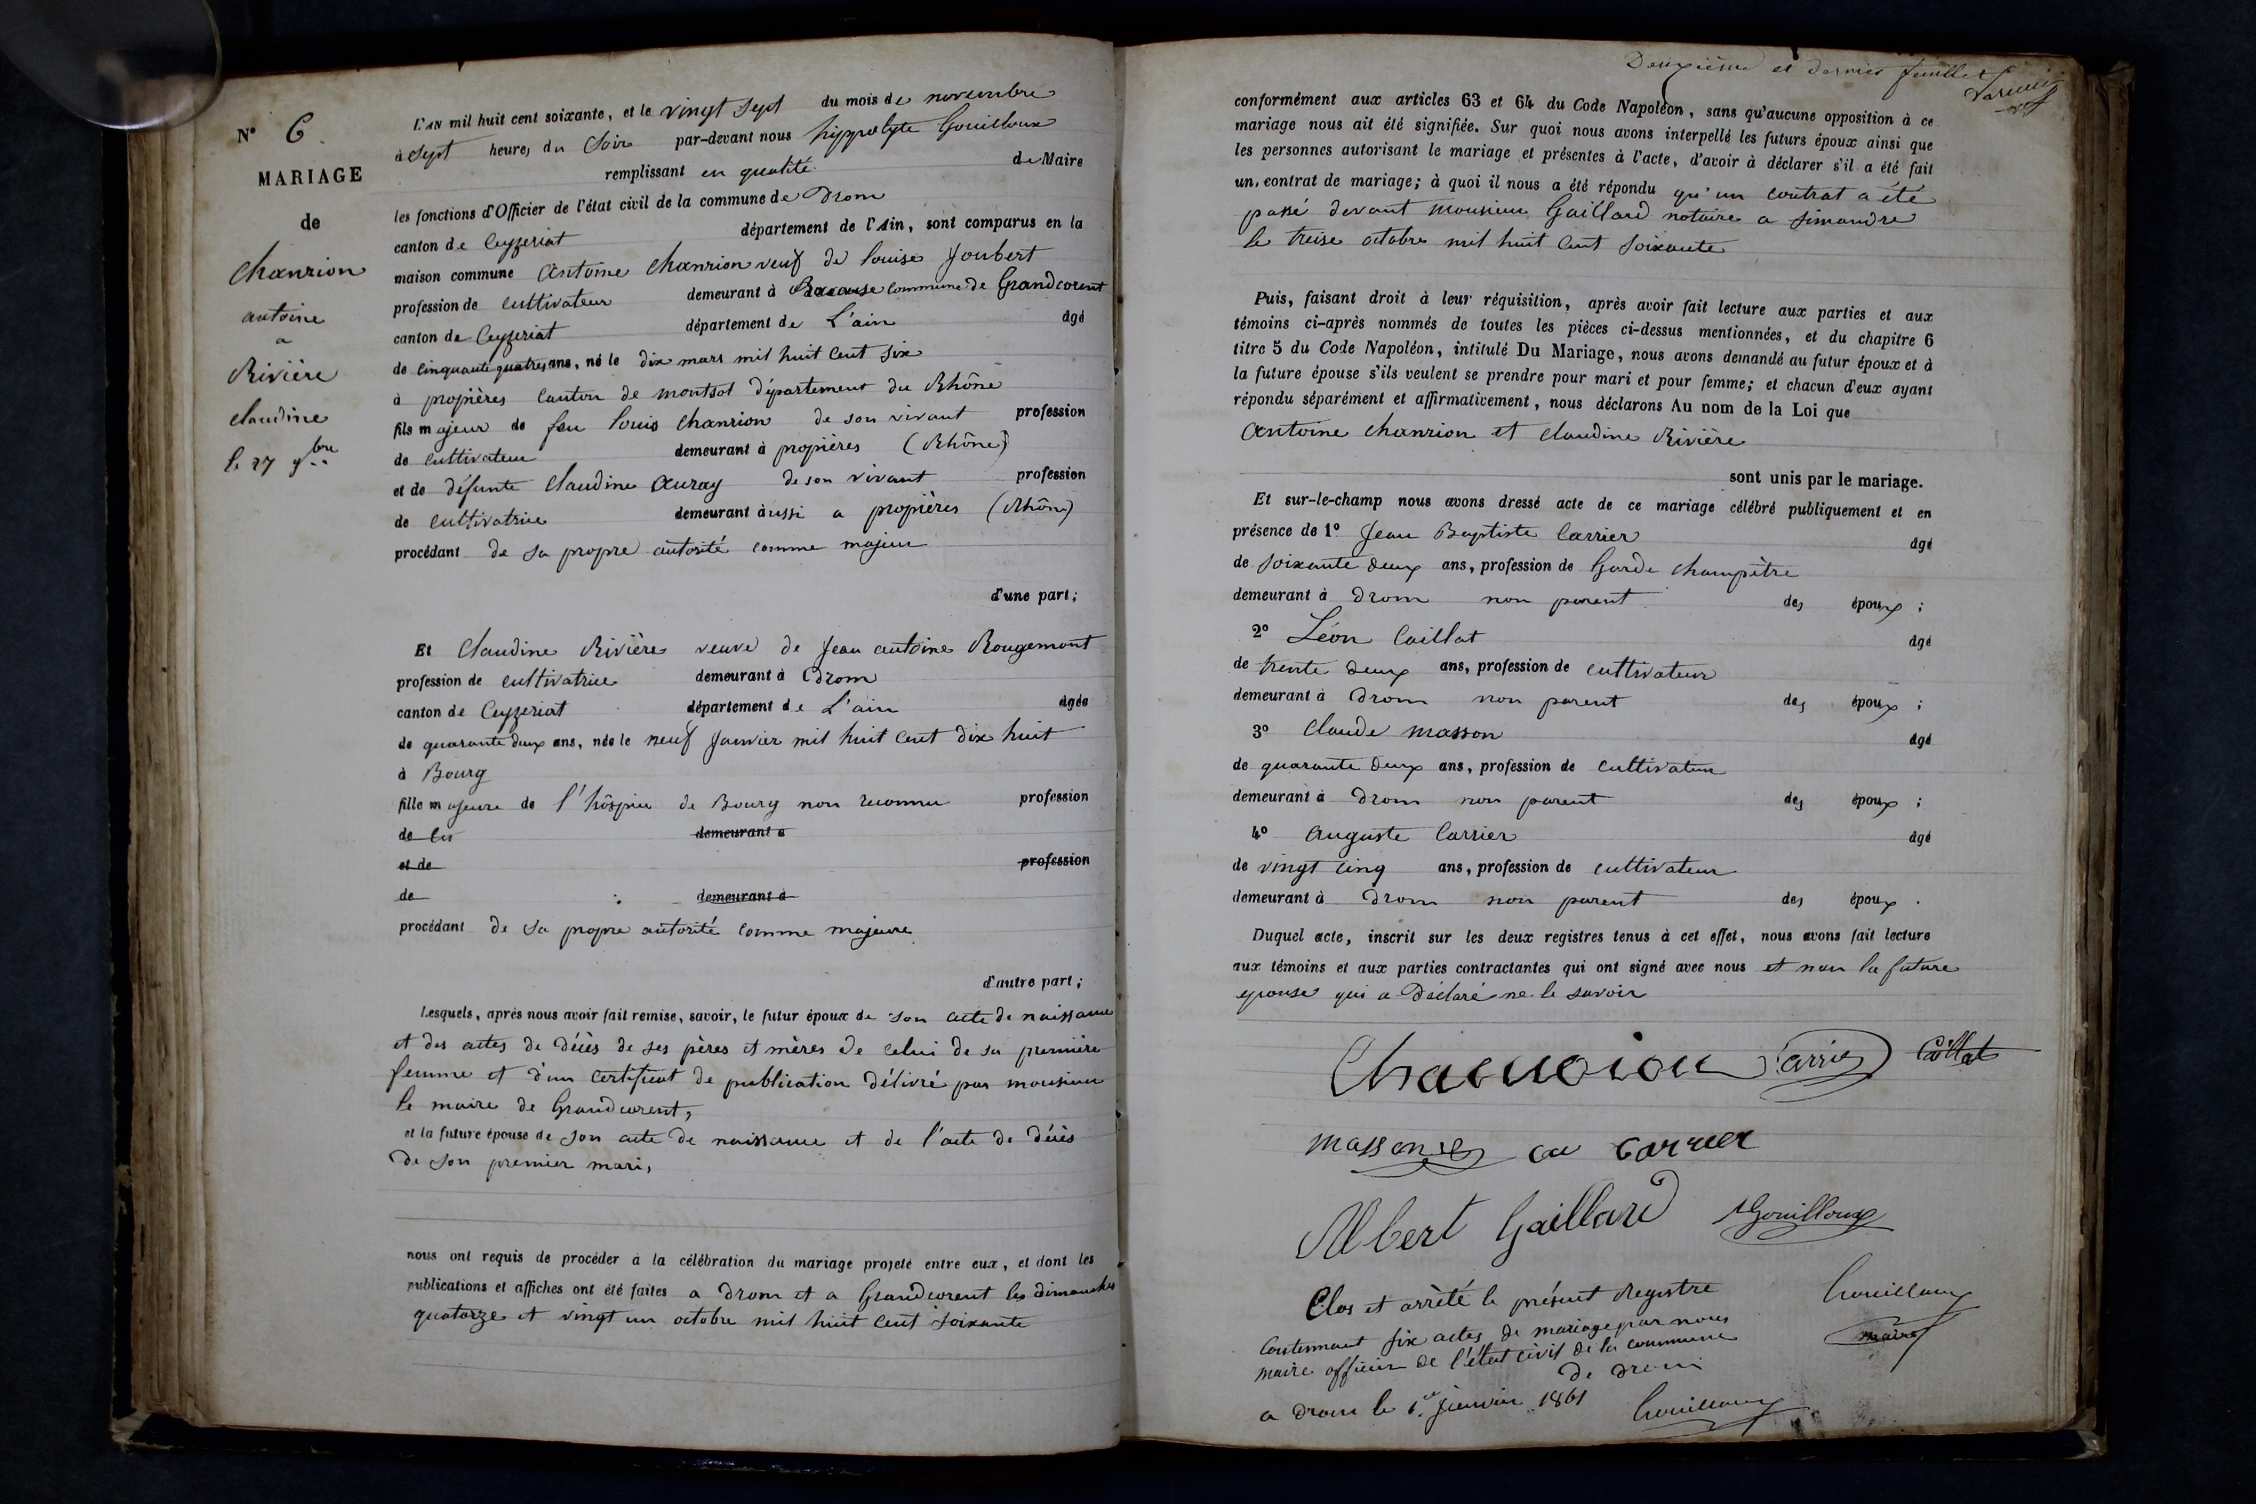 N° 6
MARIAGE
de
Chanrion
antoine
a
Rivière
claudine
le 27 9bre
L'AN mil huit cent soixante, et le vingt sept du mois de novembre
à sept heures du soir par-devant nous hippolyte Gouilloux
remplissant en qualité de Maire
les fonctions d'Officier de l'état civil de la commune de Drom
canton de Ceyzeriat département de l'Ain, sont comparus en la
maison commune antoine Chanrion veuf de louise Joubert
profession de cultivateur demeurant à commune de Grandcorent
canton de Ceyzeriat département de L'ain âgé
de cinquante quatres ans, né le dix mars mil huit cent six
à propières canton de montsol département du Rhône
fils majeur de feu louis Chanrion de son vivant profession
de cultivateur demeurant à propières (Rhône)
et de défunte Claudine auray de son vivant profession
de cultivatrice demeurant aussi a propières (Rhône)
procédant de sa propre autorité comme majeur
d'une part;
Et Claudine Rivière veuve de Jean antoine Rougemont
profession de cultivatrice demeurant à Drom
canton de Ceyzeriat département de L'ain âgée
de quarante deux ans, née le neuf Janvier mil huit cent dix huit
à Bourg
fille majeure de l'hôspice de Bourg non reconnu profession
de demeurant à
et de profession
de demeurant à
procédant de sa propre autorité comme majeure
d'autre part;
Lesquels, après nous avoir fait remise, savoir, le futur époux de son acte de naissance
et des actes de décès de ses pères et mères de celui de sa première
femme et d'un certificat de publication délivré par monsieur
le maire de Grandcorent,
et la future épouse de son acte de naissance et de l'acte de décès
de son premier mari,
nous ont requis de procéder à la célébration du mariage projeté entre eux, et dont les
publications et affiches ont été faites a Drom et a Grandcorent les dimanches
quatorze et vingt un octobre mil huit cent soixante
Deuxième et dernier feuillet
conformément aux articles 63 et 64 du Code Napoléon, sans qu'aucune opposition à ce
mariage nous ait été signifiée. Sur quoi nous avons interpellé les futurs époux ainsi que
les personnes autorisant le mariage et présentes à l'acte, d'avoir à déclarer s'il a été fait
un contrat de mariage; à quoi il nous a été répondu qu'un contrat a été
passé devant monsieur Gaillard notaire a simandre
le treise octobre mil huit cent soixante
Puis, faisant droit à leur réquisition, après avoir fait lecture aux parties et aux
témoins ci-après nommés de toutes les pièces ci-dessus mentionnées, et du chapitre 6
titre 5 du Code Napoléon, intitulé Du Mariage, nous avons demandé au futur époux et à
la future épouse s'ils veulent se prendre pour mari et pour femme; et chacun d'eux ayant
répondu séparément et affirmativement, nous déclarons Au nom de la Loi que
antoine Chanrion et Claudine Rivière
sont unis par le mariage.
Et sur-le-champ nous avons dressé acte de ce mariage célébré publiquement et en
présence de 1° Jean Baptiste Carrier âgé
de soixante deux ans, profession de Garde champêtre
demeurant à Drom non parent des époux;
2° Léon Caillat âgé
de trente deux ans, profession de cultivateur
demeurant à Drom non parent des époux;
3° Claude masson âgé
de quarante deux ans, profession de cultivateur
demeurant à Drom non parent des époux;
4° auguste Carrier âgé
de vingt cinq ans, profession de cultivateur
demeurant à Drom non parent des époux.
Duquel acte, inscrit sur les deux registres tenus à cet effet, nous avons fait lecture
aux témoins et aux parties contractantes qui ont signé avec nous et non la future
epouse qui a déclaré ne le savoir
Carrier Caillat
masson Carrier
Albert Gaillard Gouilloux
Clos et arrêté le présent Registre
Contennant six actes de mariage par nous
maire officier de l'état civil de la commune
de Drom
a Drom le 1er Janvier 1861
Gouilloux
maire
Gouilloux